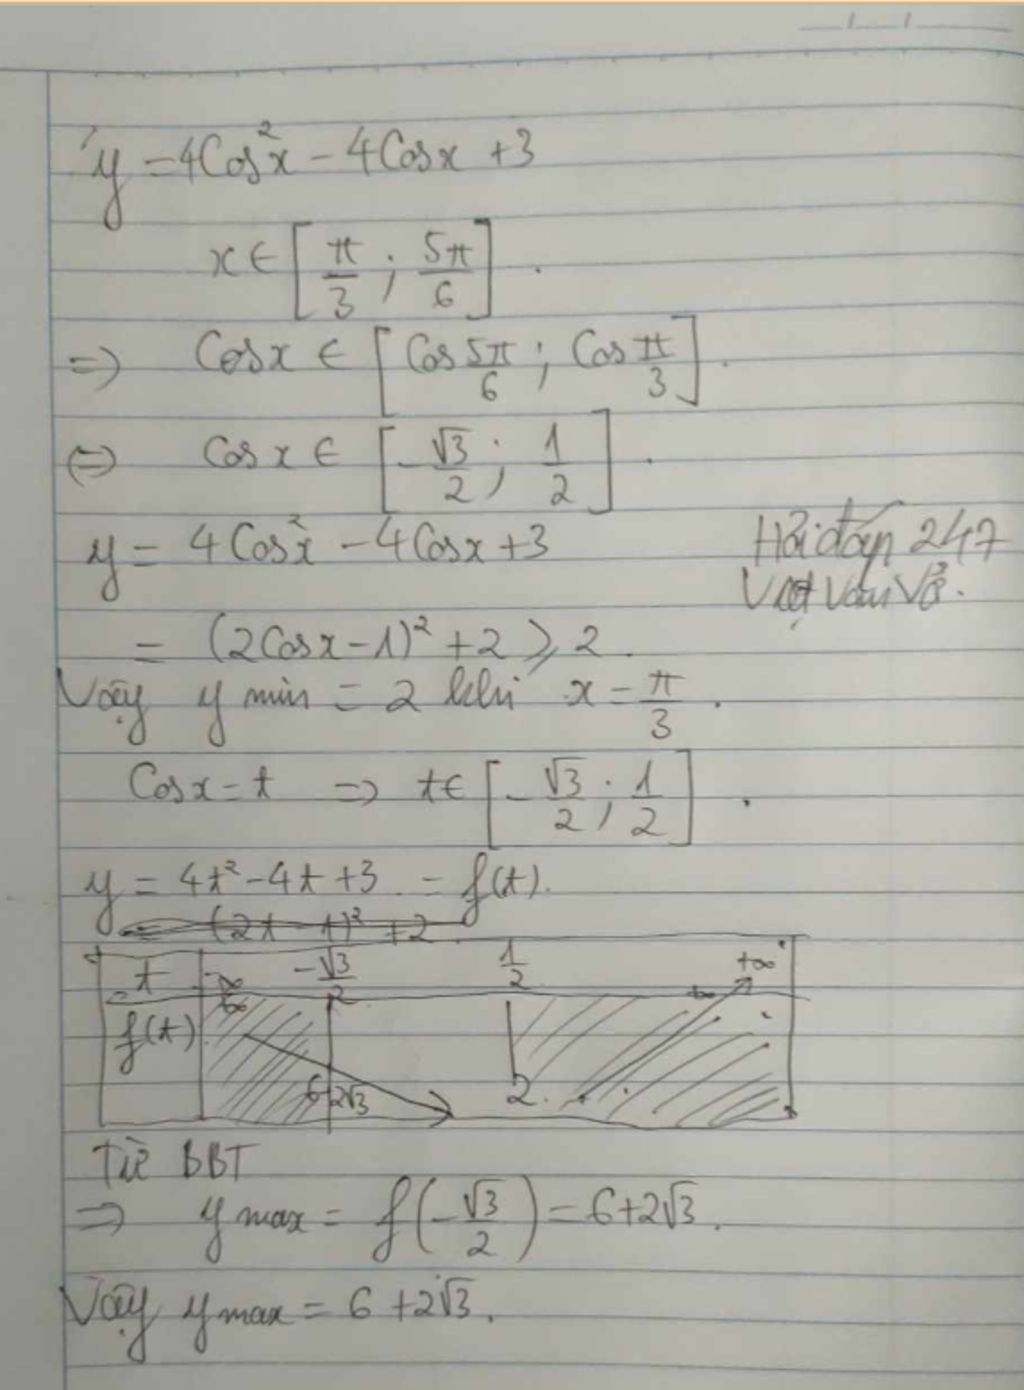 y = 4Cos²x - 4Cosx + 3
x ∈ [π/3 ; 5π/6].
=> Cosx ∈ [Cos 5π/6 ; Cos π/3].
<=> Cosx ∈ [-√3/2 ; 1/2].
y = 4Cos²x - 4Cosx + 3
Hỏi đáp 247
= (2Cosx - 1)² + 2 ≥ 2.
Vậy y min = 2 khi x = π/3.
Cosx = t => t ∈ [-√3/2 ; 1/2].
y = 4t² - 4t + 3 = f(t).
= (2t - 1)² + 2
t -∞ -√3/2 1/2 +∞
f(t) +∞ 6+2√3 2 +∞
Từ BBT
=> y max = f(-√3/2) = 6+2√3.
Vậy y max = 6 + 2√3.